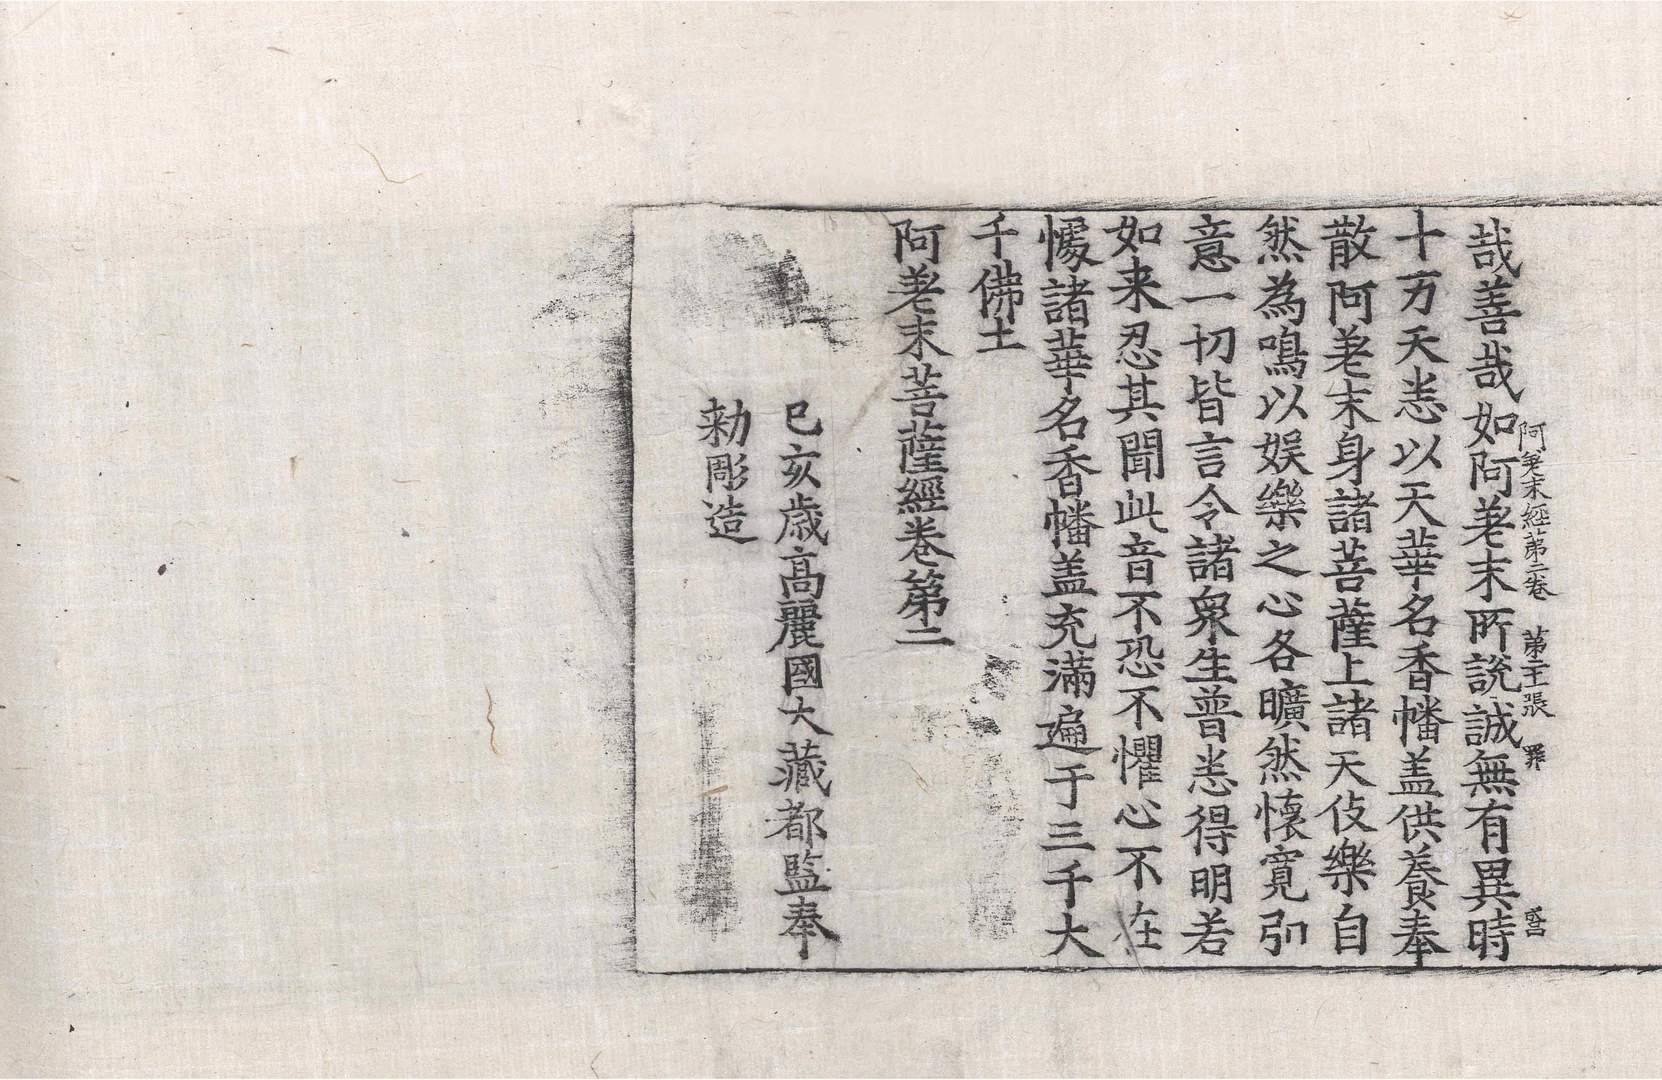 阿差末經第二卷　第二十張　罪
哉善哉如阿差末所說誠無有異時
十方天悉以天華名香幡盖供養奉
散阿差末身諸菩薩上諸天伎樂自
然為鳴以娛樂之心各曠然懷寬弘
意一切皆言令諸衆生普悉得明若
如来忍其聞此音不恐不懼心不在
懅諸華名香幡盖充滿遍于三千大
千佛土
阿差末菩薩經卷第二
己亥歲高麗國大藏都監奉
勅彫造